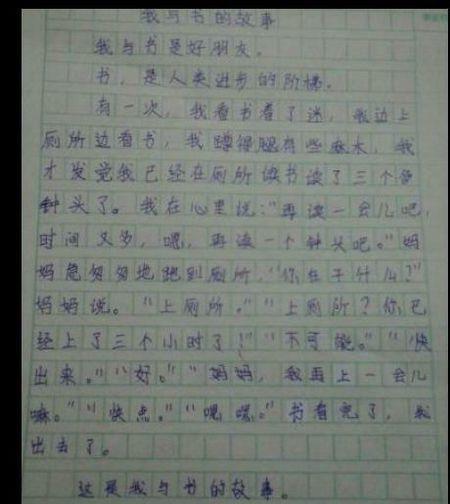 我与书的故事
我与书是好朋友。
书，是人类进步的阶梯。
有一次，我看书看了迷，我边上
厕所边看书，我蹲得腿有些麻木，我
才发觉我已经在厕所读书读了三个多
钟头了。我在心里说：“再读一会儿吧，
时间又多，嗯，再读一个钟头吧。”妈
妈急匆匆地跑到厕所，“你在干什么？”
妈妈说。“上厕所。”“上厕所？你已
经上了三个小时了！”“不可能。”“快
出来。”“好。”“妈妈，我再上一会儿
嘛。”“快点。”“嗯嗯。”书看完了，我
出去了。
这是我与书的故事。